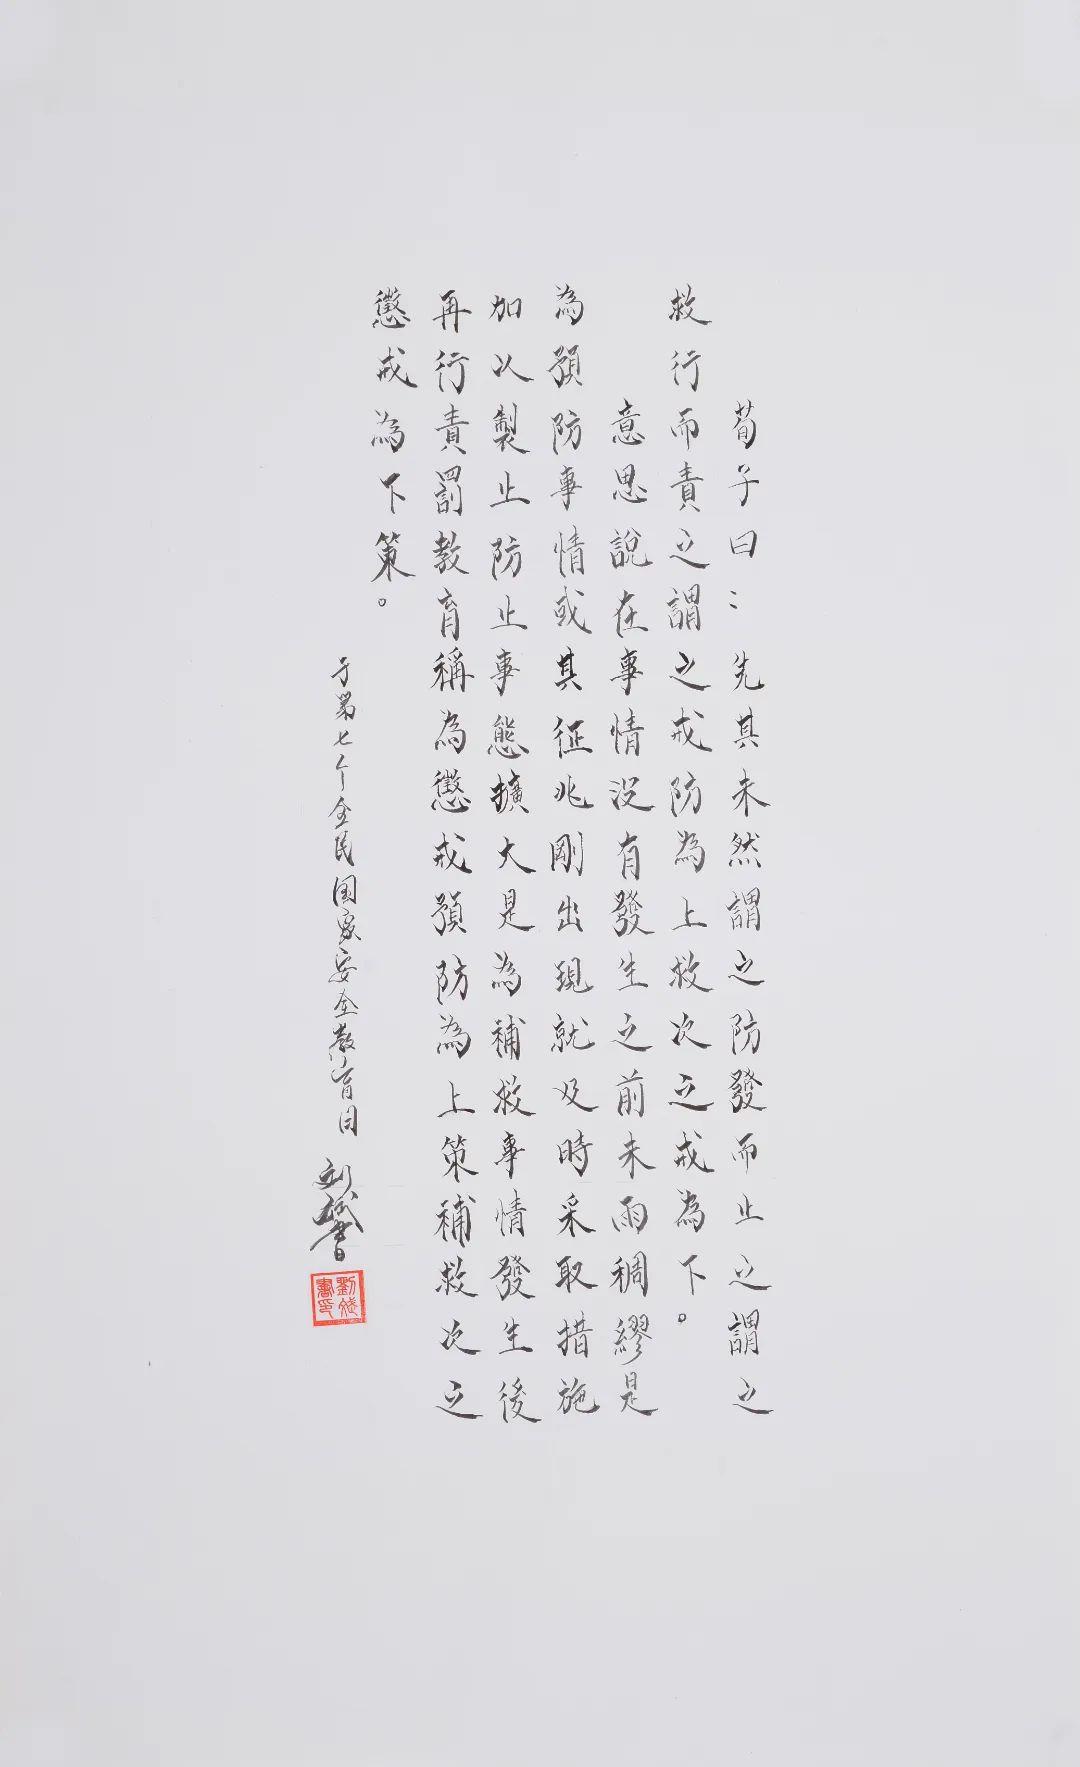 荀子曰：先其未然謂之防發而止之謂之
救行而責之謂之戒防為上救次之戒為下。
意思說在事情没有發生之前未雨稠繆是
為預防事情或其征兆剛出現就及時采取措施
加以製止防止事態擴大是為補救事情發生後
再行責罰教育稱為懲戒預防為上策補救次之
懲戒為下策。
于第七个全民国家安全教育日
刘斌書
劉斌
書印